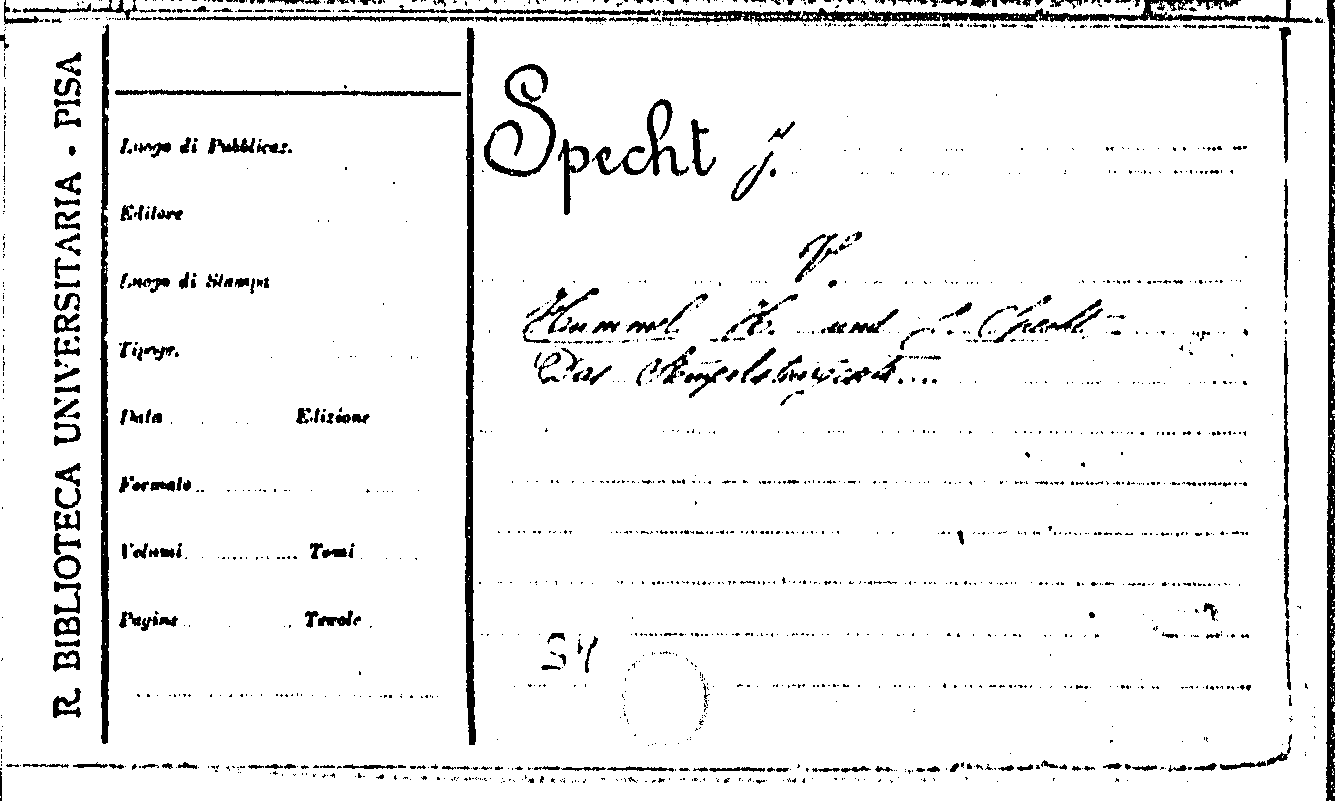 R. BIBLIOTECA UNIVERSITARIA - PISA
Luogo di Pubblicaz.
Editore
Luogo di Stampa
Tipogr.
Data Edizione
Formato
Volumi Tomi
Pagine Tavole
Specht J.
V.
Hummel K. und J. Specht -
Das